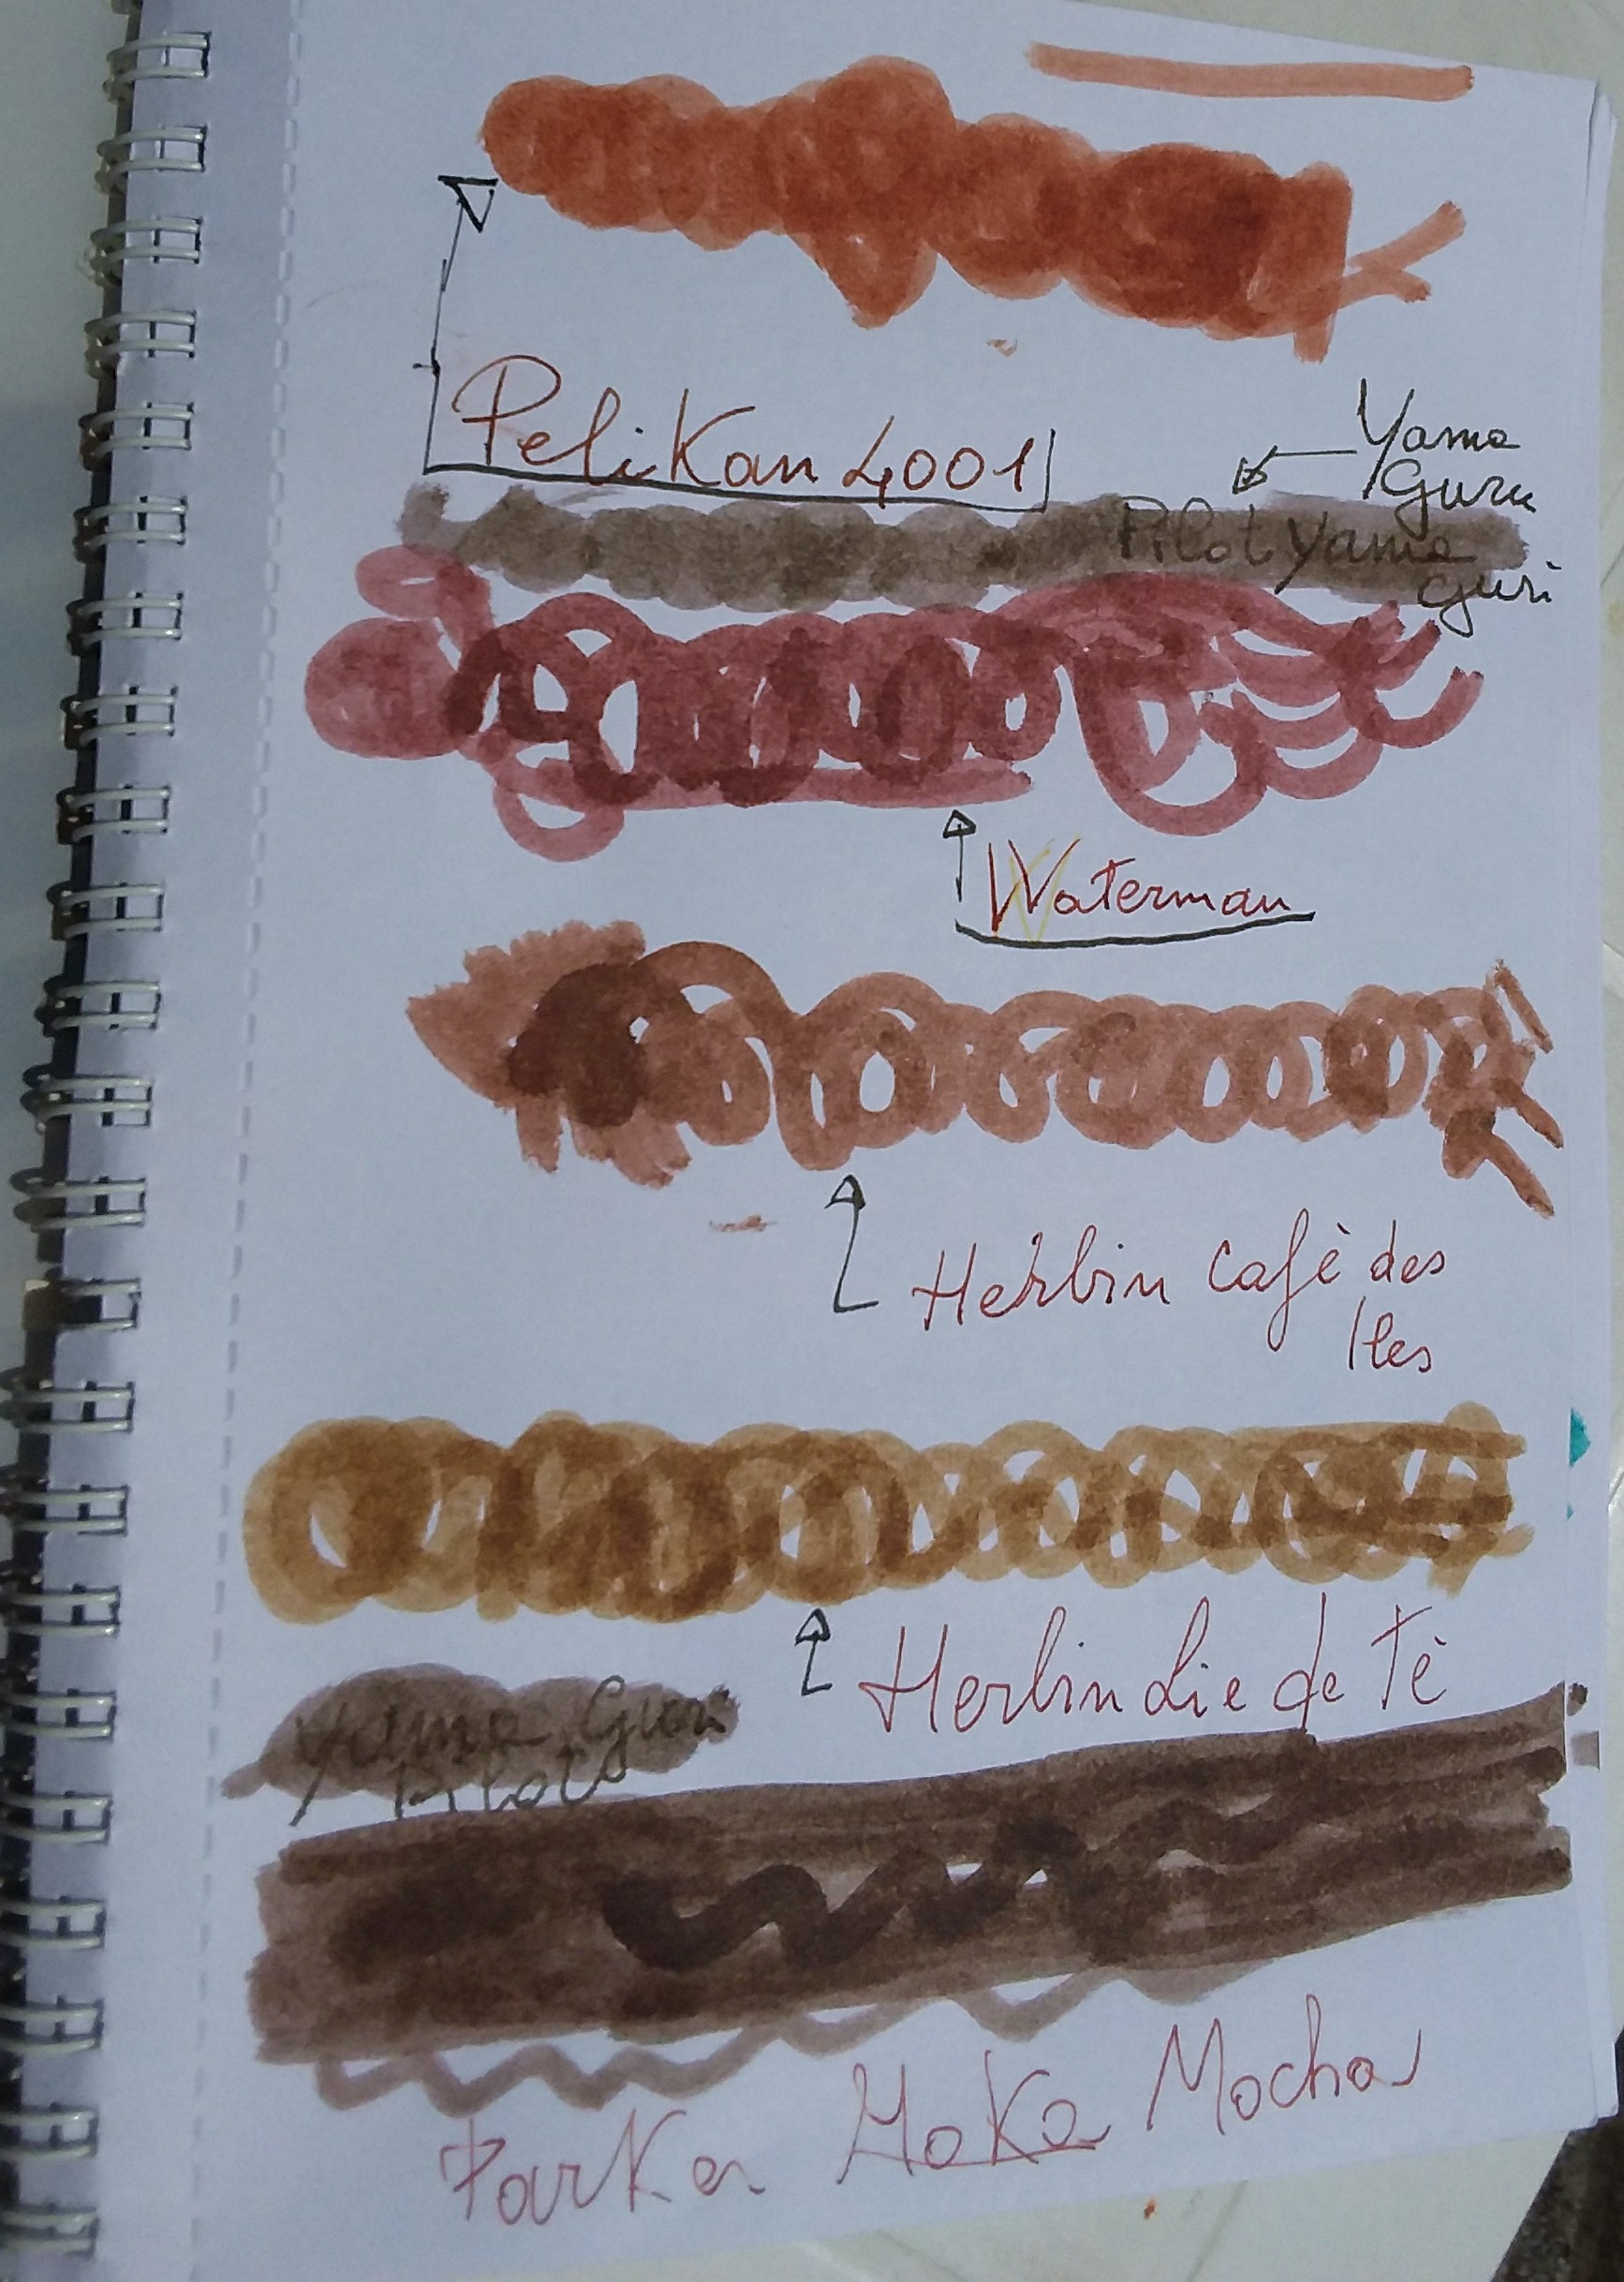 Pelikan 4001
Yama
Guru
Pilot Yama
guri
Waterman
Herbin Cafè des
Iles
Herbin Lie de Tè
Yama Guri
Pilot
Parker Moka Mocha